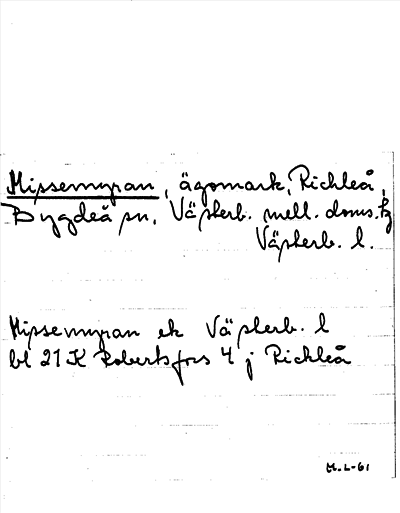 Missemyran, ägomark, Rickleå,
Bygdeå sn, Västerb. mell. doms.
Västerb. l.
Missemyran ek Västerb. l
bl 21 K Robertsfors 4 j Rickleå
M.L-61